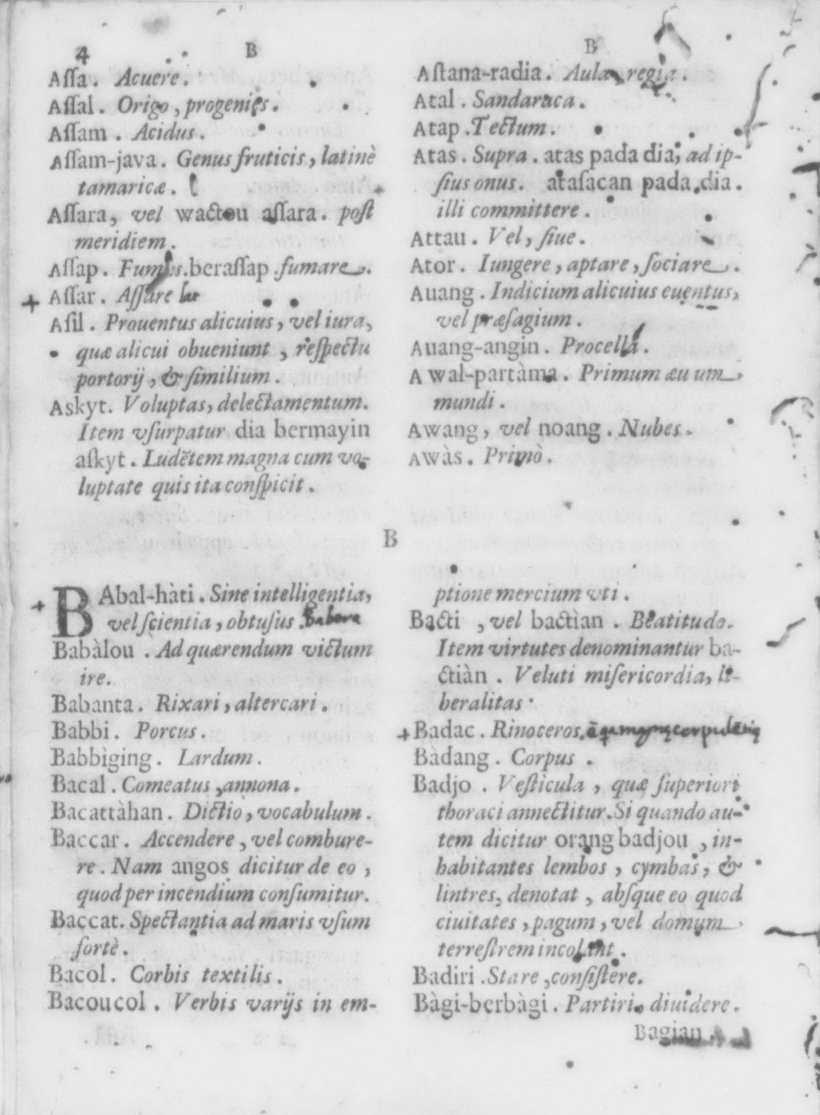 4 B
Aſſa. Acuere.
Aſſal. Origo, progenies.
Aſſam. Acidus.
Aſſam-java. Genus fruticis, latinè
tamaricæ.
Aſſara, vel wactou aſſara. poſt
meridiem.
Aſſap. Fumus. beraſſap. fumare.
Aſſar. Aſſare
Aſil. Prouentus alicuius, vel iura,
quæ alicui obueniunt, reſpectu
portorij, & ſimilium.
Askyt. Voluptas, delectamentum.
Item vſurpatur dia bermayin
aſkyt. Ludẽtem magna cum vo-
luptate quis ita conſpicit.
B
Aſtana-radia. Aula regia.
Atal. Sandaraca.
Atap. Tectum.
Atas. Supra. atas pada dia, ad ip-
ſius onus. ataſacan pada dia.
illi committere.
Attau. Vel, ſiue.
Ator. Iungere, aptare, ſociare.
Auang. Indicium alicuius euentus,
vel præſagium.
Auang-angin. Procella.
Awal-partàma. Primum æuum
mundi.
Awang, vel noang. Nubes.
Awàs. Primò.
B
BAbal-hàti. Sine intelligentia,
vel ſcientia, obtuſus. Babora
Babàlou. Ad quærendum victum
ire.
Babanta. Rixari, altercari.
Babbi. Porcus.
Babbìging. Lardum.
Bacal. Comeatus, annona.
Bacattàhan. Dictio, vocabulum.
Baccar. Accendere, vel combure-
re. Nam angos dicitur de eo,
quod per incendium conſumitur.
Baccat. Spectantia ad maris vſum
ſortè.
Bacol. Corbis textilis.
Bacoucol. Verbis varijs in em-
ptione mercium vti.
Bacti, vel bactìan. Beatitudo.
Item virtutes denominantur ba-
ctiàn. Veluti miſericordia, li-
beralitas.
Badac. Rinoceros.
Bàdang. Corpus.
Badjo. Veſticula, quæ ſuperiori
thoraci annectitur. Si quando au-
tem dicitur orang badjou, in-
habitantes lembos, cymbas, &
lintres, denotat, abſque eo quod
ciuitates, pagum, vel domum
terreſtrem incolant.
Badiri. Stare, conſiſtere.
Bàgi-berbàgi. Partiri. diuidere.
Bagian